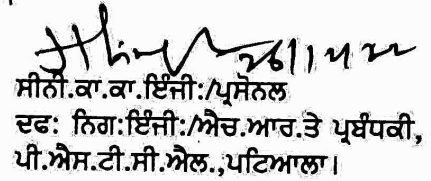 ਸੀਨੀ.ਕਾ.ਕਾ.ਇੰਜੀ:/ਪ੍ਰਸੋਨਲ
ਦਫ: ਨਿਗ:ਇੰਜੀ:/ਐਚ.ਆਰ.ਤੇ ਪ੍ਰਬੰਧਕੀ,
ਪੀ.ਐਸ.ਟੀ.ਸੀ.ਐਲ.,ਪਟਿਆਲਾ।